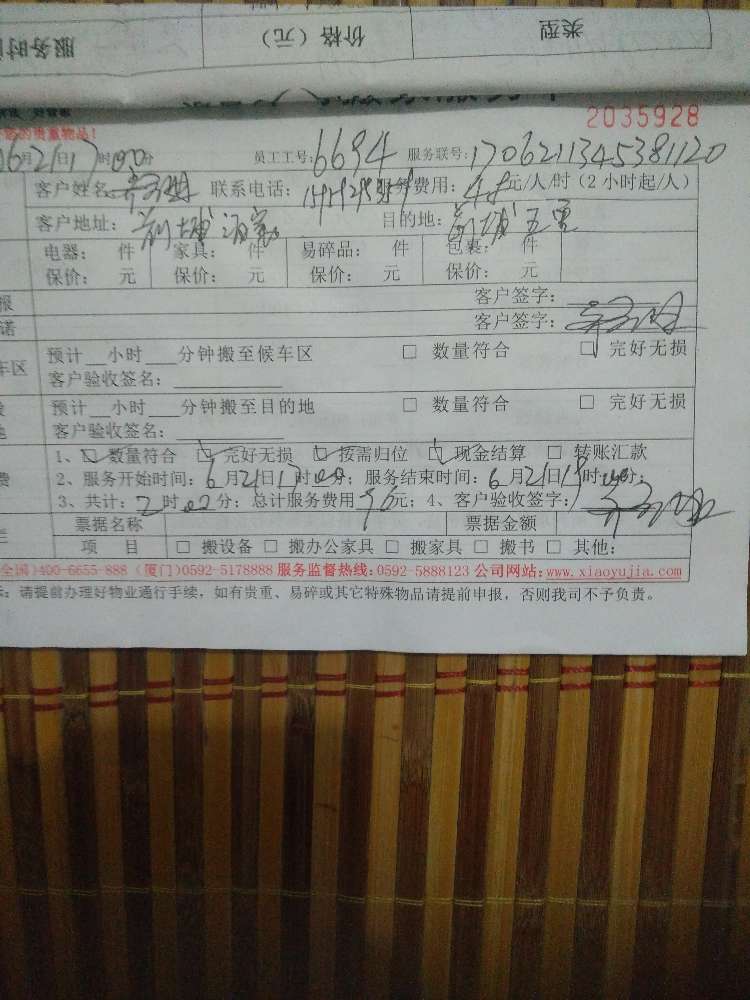 服务时 价格（元） 类型
2035928
的贵重物品！
6月21日17时00分 员工工号：6694 服务联号：1706211345381120
客户姓名： 联系电话： 费用：48元/人/时（2小时起/人）
客户地址： 目的地：
电器： 件 家具： 件 易碎品： 件 包裹： 件
保价： 元 保价： 元 保价： 元 保价： 元
报 客户签字：
诺 客户签字：
车区 预计__小时__分钟搬至候车区 □ 数量符合 □ 完好无损
客户验收签名：
预计__小时__分钟搬至目的地 □ 数量符合 □ 完好无损
地 客户验收签名：
1、☑ 数量符合 ☑ 完好无损 ☑ 按需归位 ☑ 现金结算 □ 转账汇款
费 2、服务开始时间：6月21日17时00分；服务结束时间：6月21日19时00分；
3、共计：2时02分；总计服务费用96元；4、客户验收签字：
票据名称 票据金额
栏 项 目 □ 搬设备 □ 搬办公家具 □ 搬家具 □ 搬书 □ 其他：
全国)400-6655-888（厦门)0592-5178888 服务监督热线：0592-5888123 公司网站：www.xiaoyujia.com
示：请提前办理好物业通行手续，如有贵重、易碎或其它特殊物品请提前申报，否则我司不予负责。